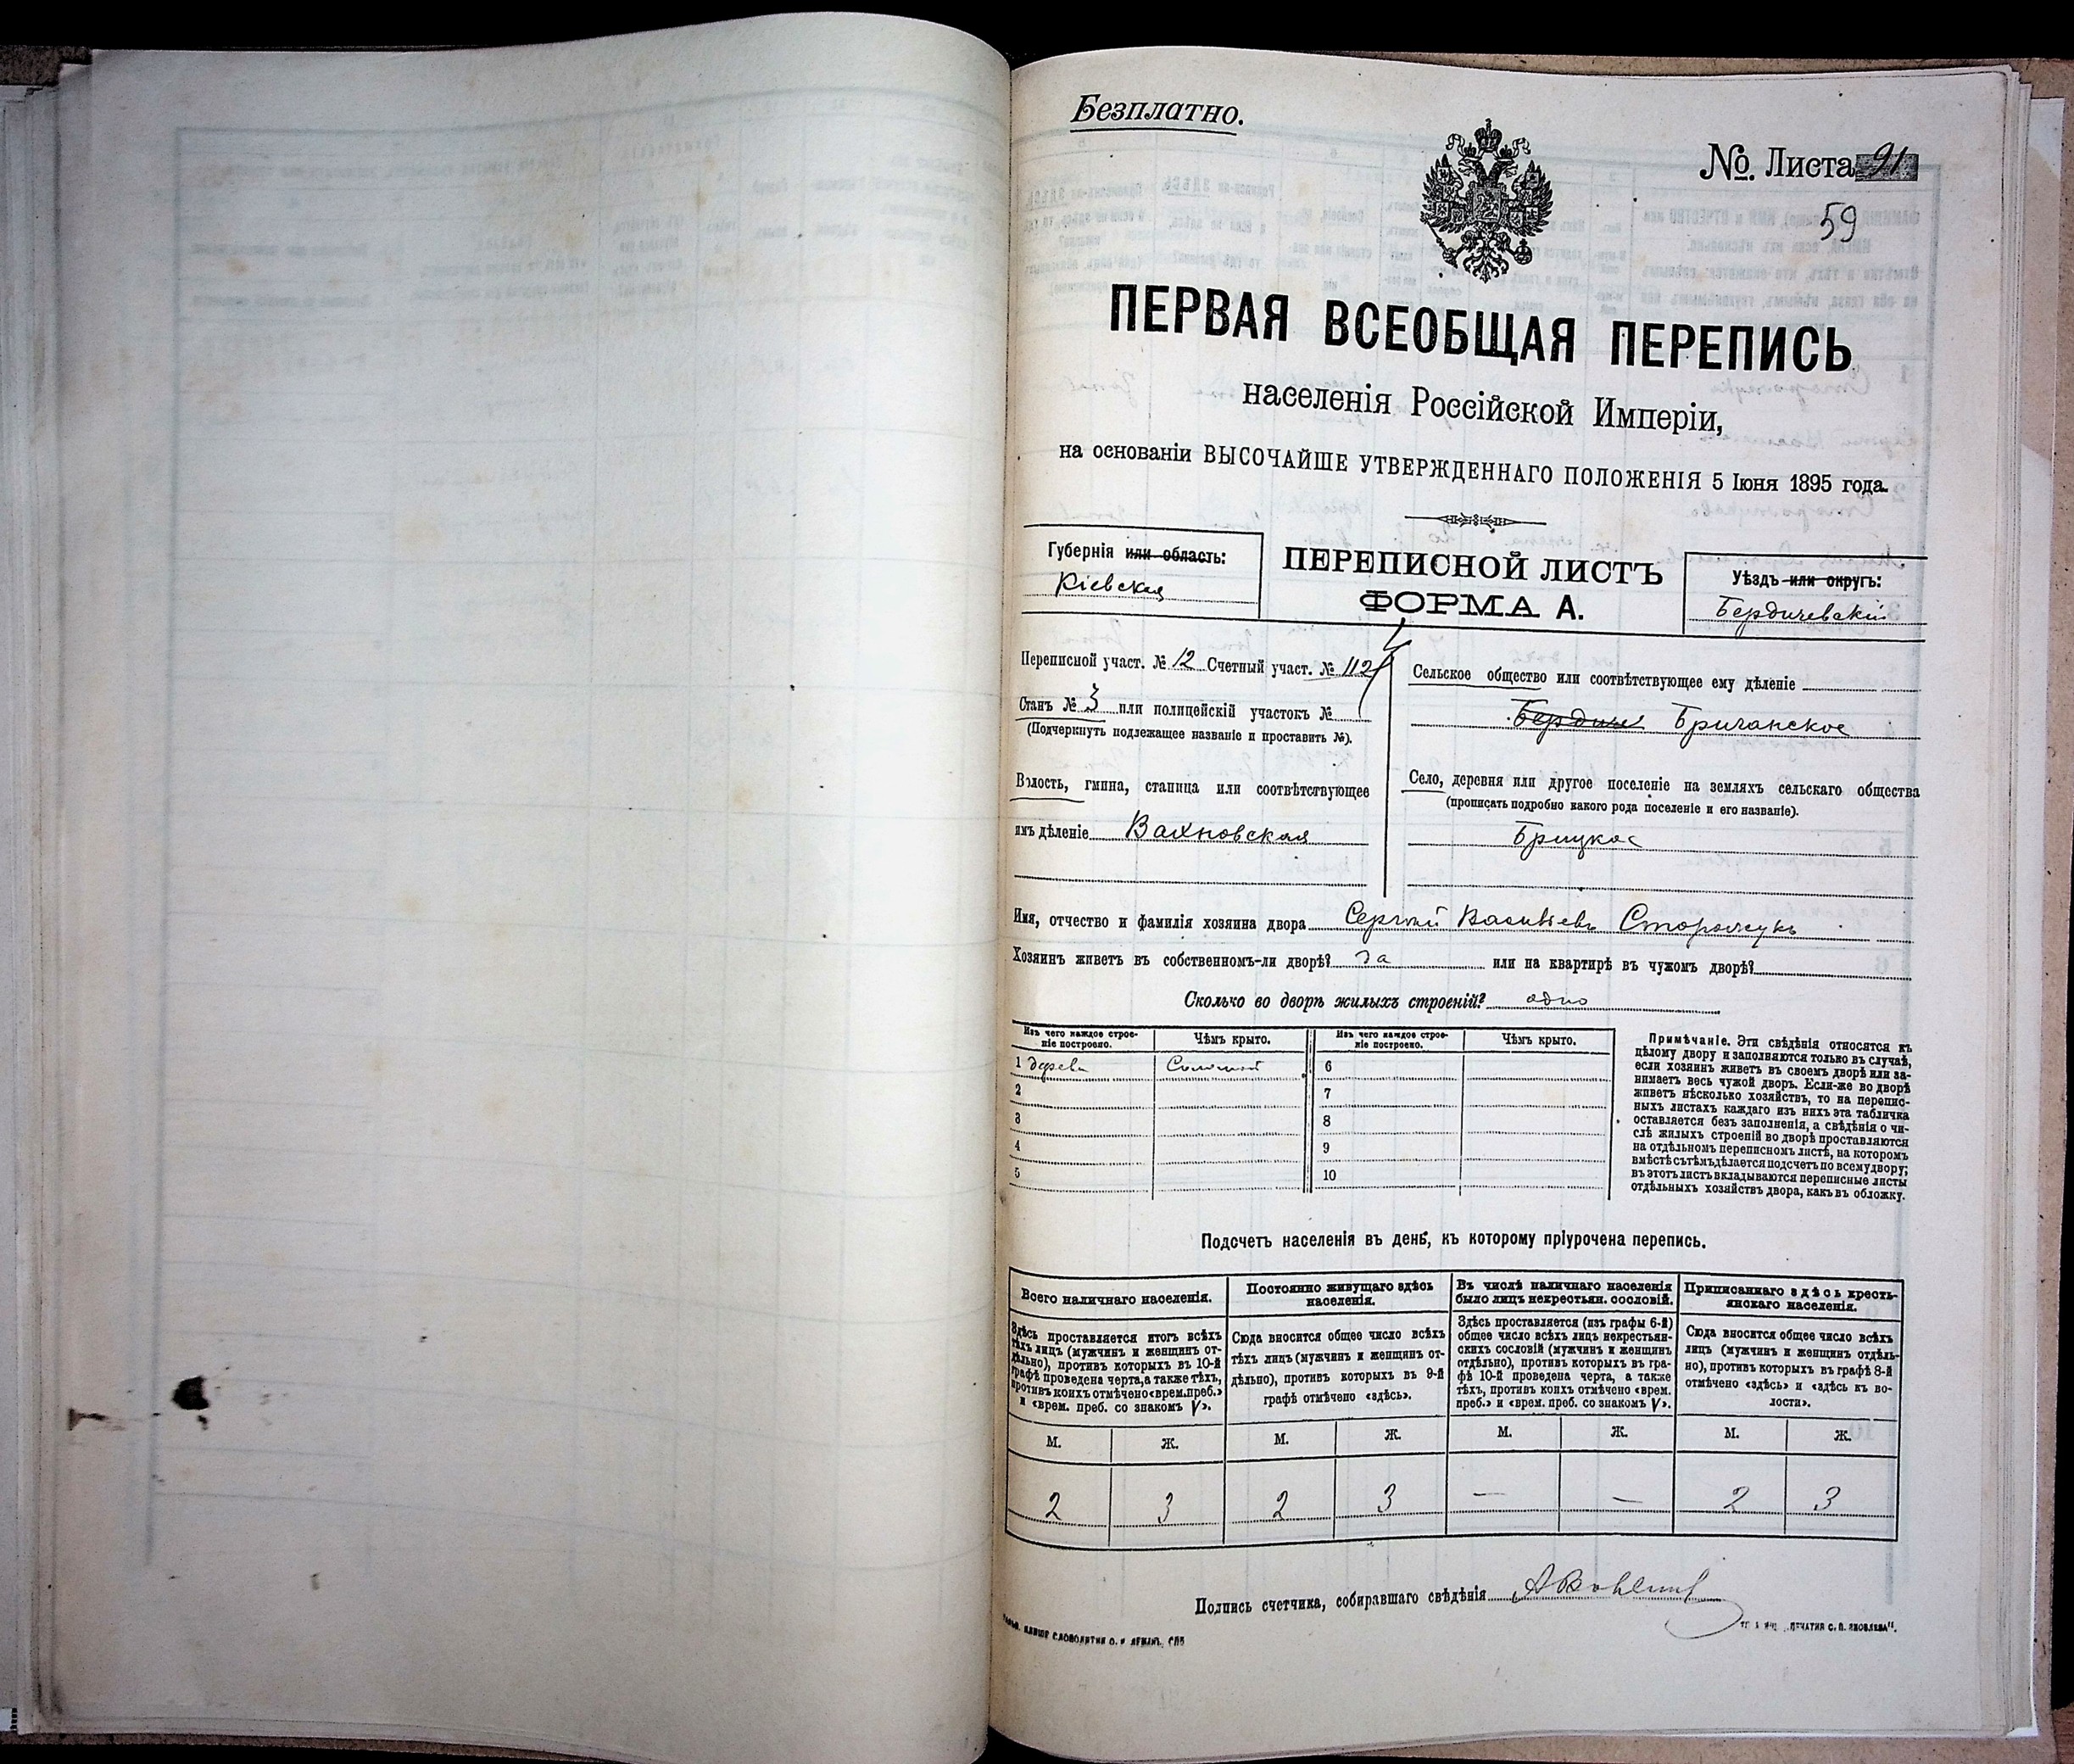 Безплатно.
№ Листа 91
59
ПЕРВАЯ ВСЕОБЩАЯ ПЕРЕПИСЬ
населенія Россійской Имперіи,
на основаніи ВЫСОЧАЙШЕ УТВЕРЖДЕННАГО ПОЛОЖЕНІЯ 5 Іюня 1895 года.
Губернія или область:
Кіевская
ПЕРЕПИСНОЙ ЛИСТЪ
ФОРМА А.
Уѣздъ или округъ:
Бердичевскій
Переписной участ. № 12 Счетный участ. № 112
Станъ № 3 или полицейскій участокъ №
(Подчеркнуть подлежащее названіе и проставить №).
Волость, гмина, станица или соотвѣтствующее
имъ дѣленіе Вахновская
Сельское общество или соотвѣтствующее ему дѣленіе
Бричанское
Село, деревня или другое поселеніе на земляхъ сельскаго общества
(прописать подробно какого рода поселеніе и его названіе).
Брицкое
Имя, отчество и фамилія хозяина двора Сергѣй Васильевъ Сторожукъ
Хозяинъ живетъ въ собственномъ-ли дворѣ? да или на квартирѣ въ чужомъ дворѣ?
Сколько во дворѣ жилыхъ строеній? одно
Изъ чего каждое строеніе построено.
Чѣмъ крыто.
Изъ чего каждое строеніе построено.
Чѣмъ крыто.
1 дерева Соломой 6
2 7
3 8
4 9
5 10
Примѣчаніе. Эти свѣдѣнія относятся къ
цѣлому двору и заполняются только въ случаѣ,
если хозяинъ живетъ въ своемъ дворѣ или за-
нимаетъ весь чужой дворъ. Если-же во дворѣ
живетъ нѣсколько хозяйствъ, то на перепис-
ныхъ листахъ каждаго изъ нихъ эта табличка
оставляется безъ заполненія, а свѣдѣнія о чи-
слѣ жилыхъ строеній во дворѣ проставляются
на отдѣльномъ переписномъ листѣ, на которомъ
вмѣстѣ съ тѣмъ дѣлается подсчетъ по всему двору;
въ этотъ листъ вкладываются переписные листы
отдѣльныхъ хозяйствъ двора, какъ въ обложку.
Подсчетъ населенія въ день, къ которому пріурочена перепись.
Всего наличнаго населенія.
Здѣсь проставляется итогъ всѣхъ
тѣхъ лицъ (мужчинъ и женщинъ от-
дѣльно), противъ которыхъ въ 10-й
графѣ проведена черта, а также тѣхъ,
противъ коихъ отмѣчено «врем. преб.»
и «врем. преб. со знакомъ V».
Постоянно живущаго здѣсь
населенія.
Сюда вносится общее число всѣхъ
тѣхъ лицъ (мужчинъ и женщинъ от-
дѣльно), противъ которыхъ въ 9-й
графѣ отмѣчено «здѣсь».
Въ числѣ наличнаго населенія
было лицъ некрестьян. сословій.
Здѣсь проставляется (изъ графы 6-й)
общее число всѣхъ лицъ некрестьян-
скихъ сословій (мужчинъ и женщинъ
отдѣльно), противъ которыхъ въ гра-
фѣ 10-й проведена черта, а также
тѣхъ, противъ коихъ отмѣчено «врем.
преб.» и «врем. преб. со знакомъ V».
Приписаннаго здѣсь кресть-
янскаго населенія.
Сюда вносится общее число всѣхъ
лицъ (мужчинъ и женщинъ отдѣль-
но), противъ которыхъ въ графѣ 8-й
отмѣчено «здѣсь» и «здѣсь къ во-
лости».
М. Ж. М. Ж. М. Ж. М. Ж.
2 3 2 3 — — 2 3
Подпись счетчика, собиравшаго свѣдѣнія